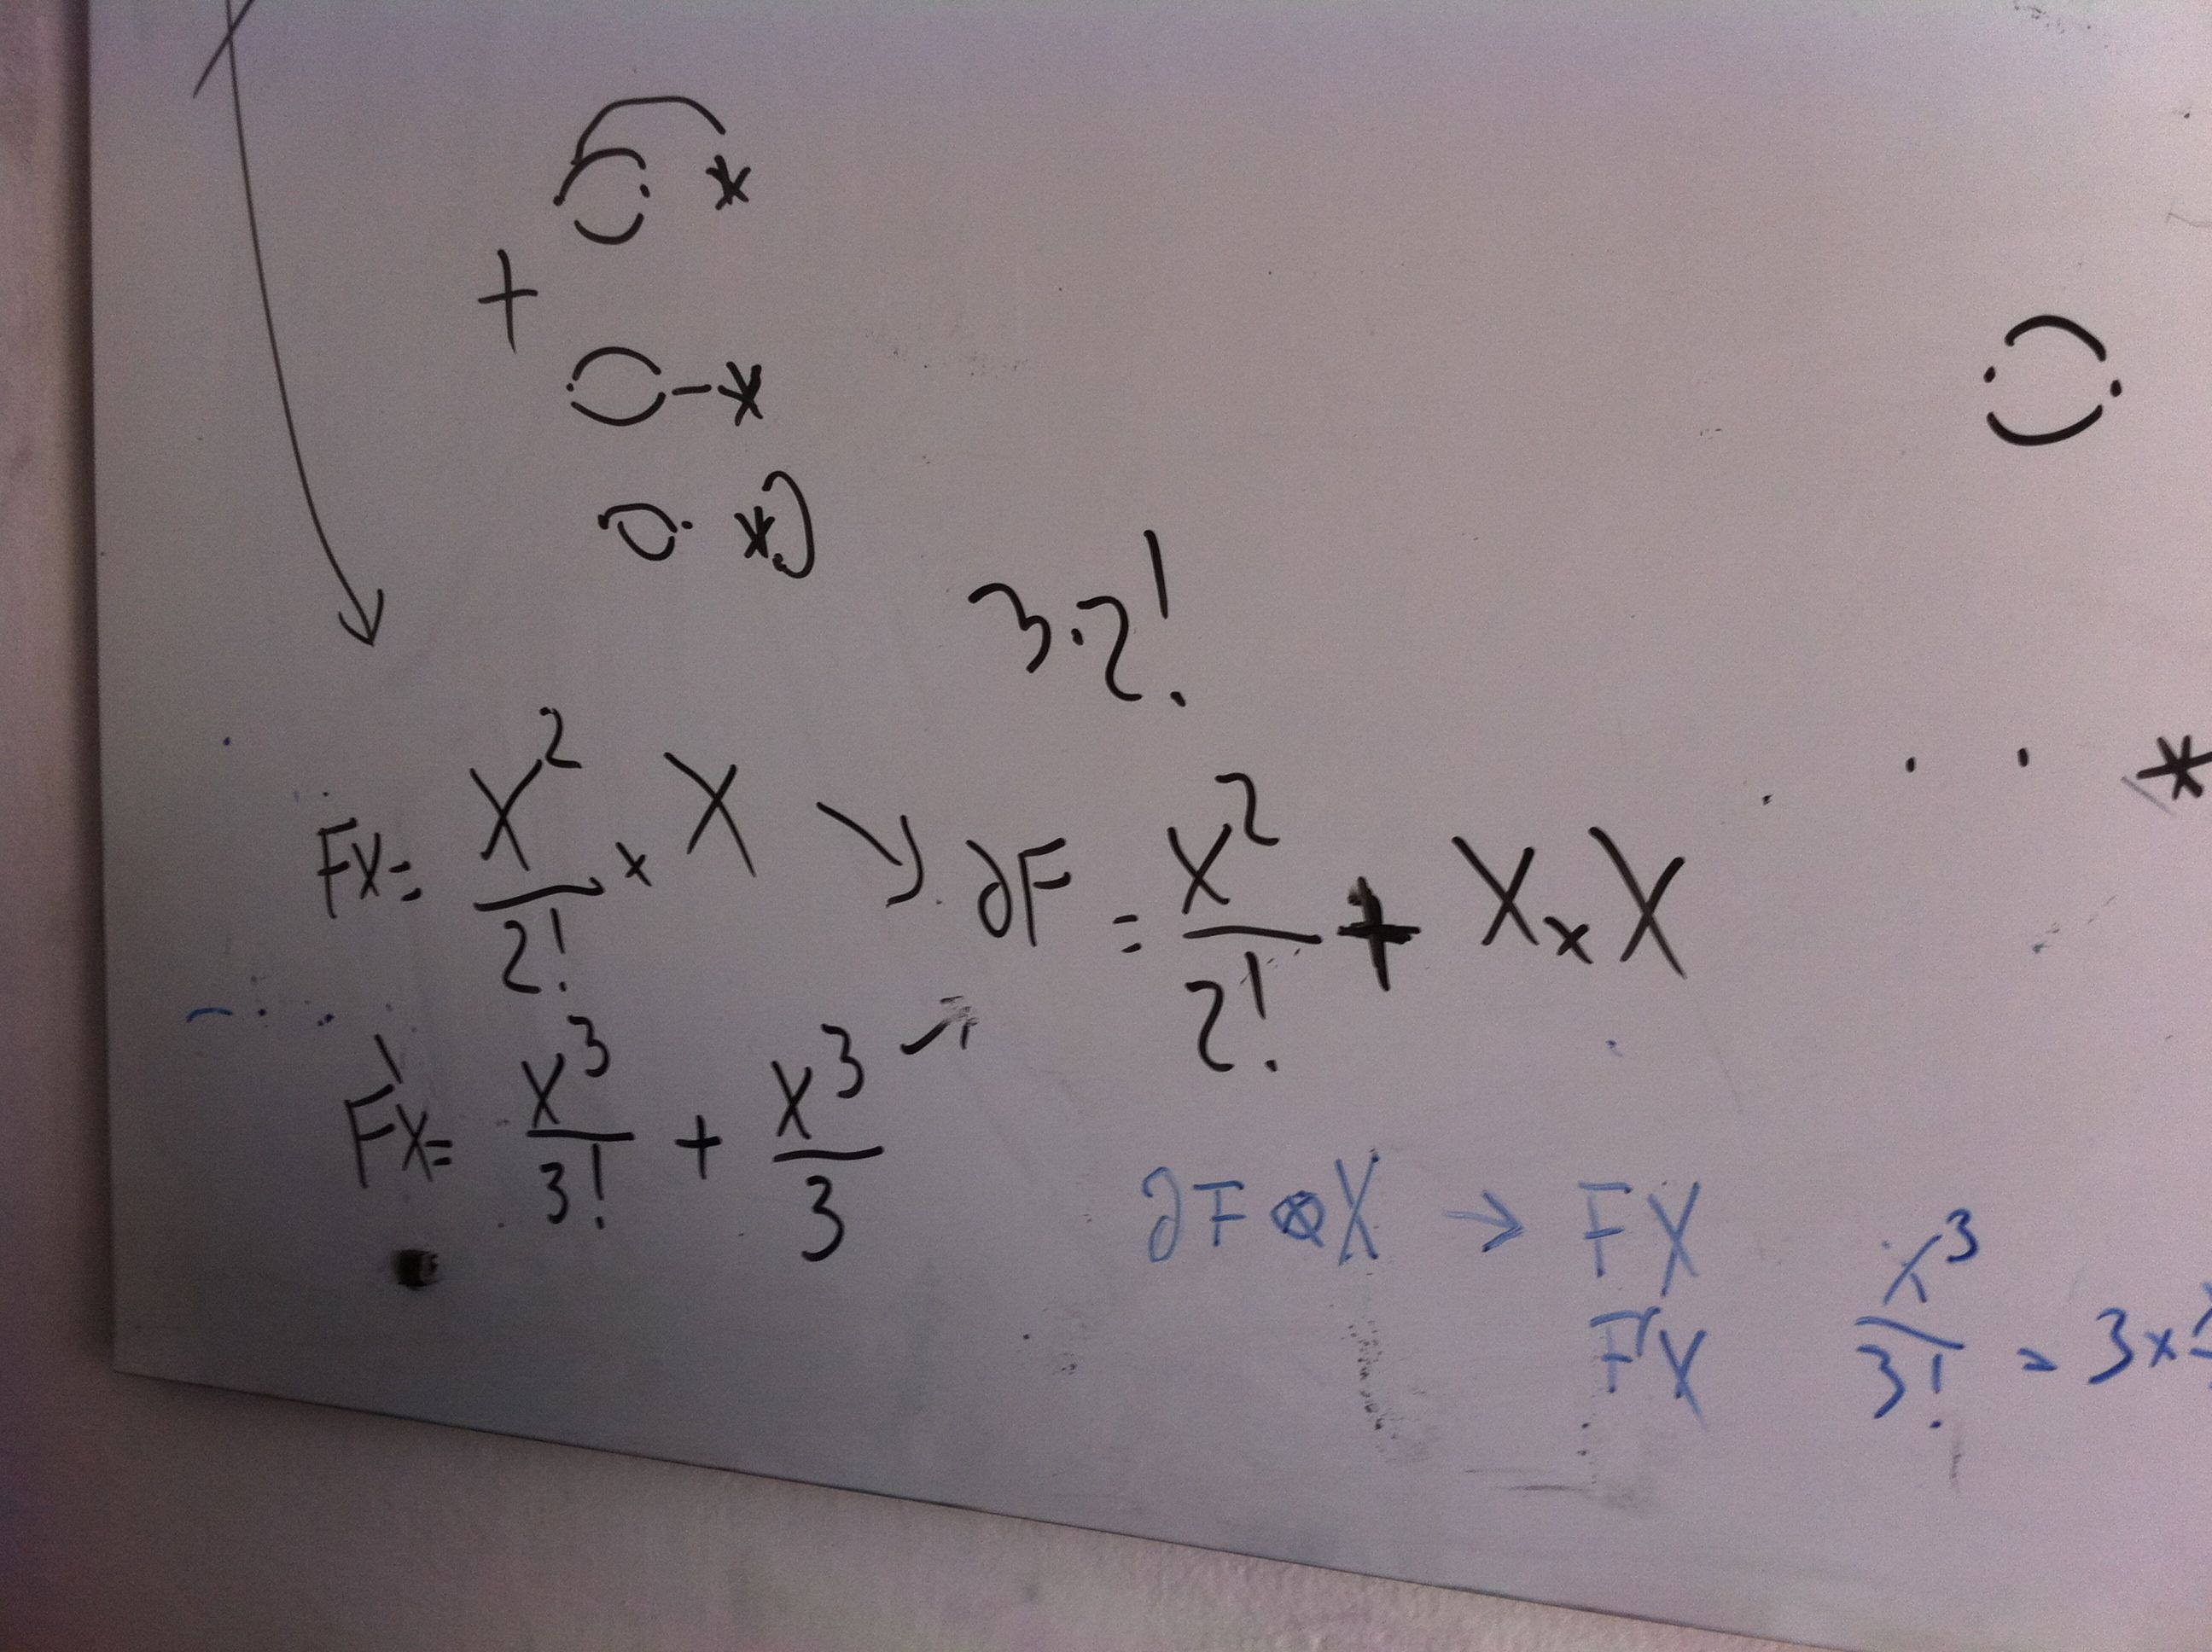 *
+
*
*
3·2!
FX = X²/2! × X ↘ ∂F = X²/2! + X × X
*
F'X = X³/3! + X³/3 ↗
∂F ⊗ X → FX
F'X
X³/3! = 3 ×